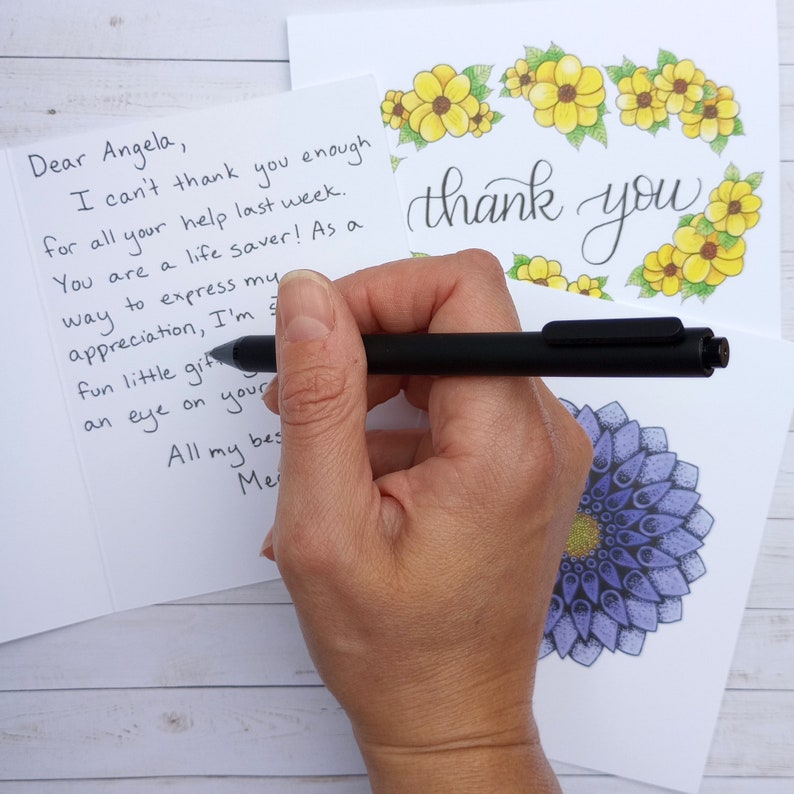 Dear Angela,
I can't thank you enough
for all your help last week.
You are a life saver! As a
way to express my
appreciation, I'm
fun little
an eye on your
All my
thank you